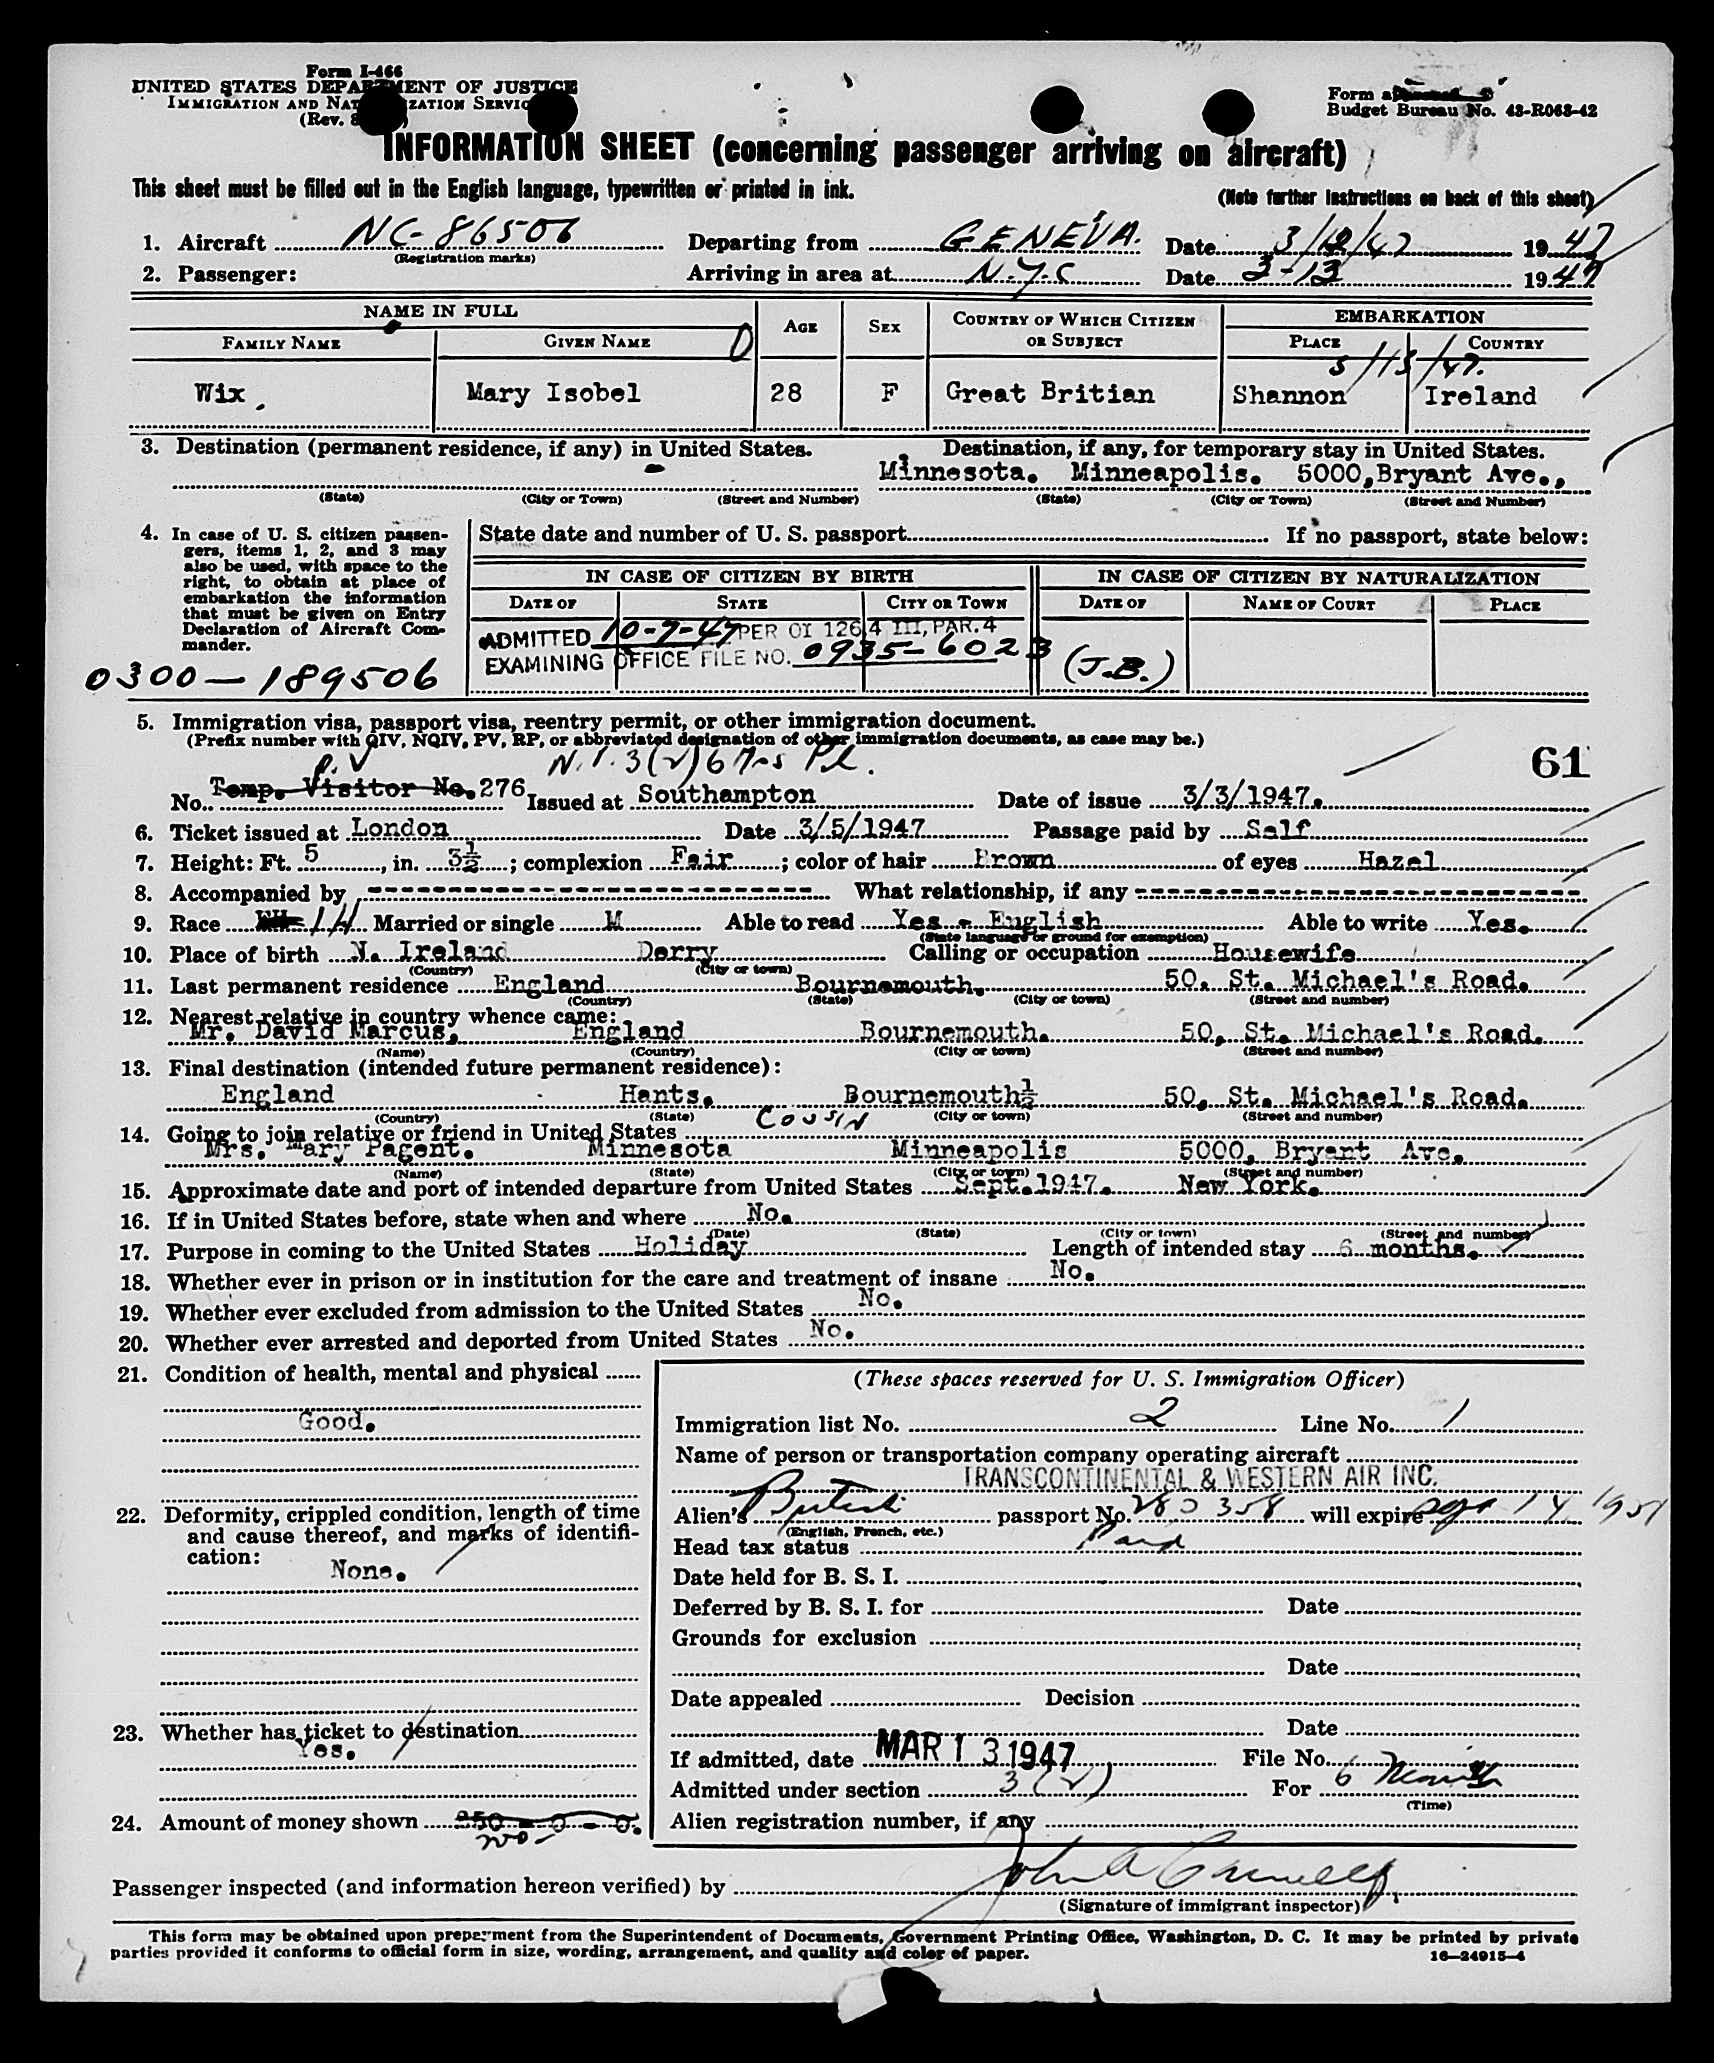 Form I-466
UNITED STATES DEPARTMENT OF JUSTICE
IMMIGRATION AND NATURALIZATION SERVICE
(Rev.
Budget Bureau No. 43-R063-42
INFORMATION SHEET (concerning passenger arriving on aircraft)
This sheet must be filled out in the English language, typewritten or printed in ink.
(Note further instructions on back of this sheet)
1. Aircraft NC-86506 Departing from GENEVA. Date 3/12/47 1947
(Registration marks)
2. Passenger: Arriving in area at N.Y.C Date 3-13 1947
NAME IN FULL AGE SEX COUNTRY OF WHICH CITIZEN OR SUBJECT EMBARKATION
FAMILY NAME GIVEN NAME PLACE COUNTRY
Wix. Mary Isobel 28 F Great Britian Shannon Ireland
3. Destination (permanent residence, if any) in United States. Destination, if any, for temporary stay in United States.
Minnesota. Minneapolis. 5000,Bryant Ave.,
(State) (City or Town) (Street and Number) (State) (City or Town) (Street and Number)
4. In case of U. S. citizen passengers, items 1, 2, and 3 may also be used, with space to the right, to obtain at place of embarkation the information that must be given on Entry Declaration of Aircraft Commander.
State date and number of U. S. passport If no passport, state below:
IN CASE OF CITIZEN BY BIRTH IN CASE OF CITIZEN BY NATURALIZATION
DATE OF STATE CITY OR TOWN DATE OF NAME OF COURT PLACE
ADMITTED 10-7-47 PER OI 126.4 III, PAR. 4
EXAMINING OFFICE FILE NO. 0935-6023 (J.B.)
0300-189506
5. Immigration visa, passport visa, reentry permit, or other immigration document.
(Prefix number with QIV, NQIV, PV, RP, or abbreviated designation of other immigration documents, as case may be.)
61
No. Temp. Visitor No. 276 Issued at Southampton Date of issue 3/3/1947.
6. Ticket issued at London Date 3/5/1947 Passage paid by Self
7. Height: Ft. 5, in. 3½; complexion Fair; color of hair Brown of eyes Hazel
8. Accompanied by ---- What relationship, if any ----
9. Race Married or single M Able to read Yes - English Able to write Yes.
(State language or ground for exemption)
10. Place of birth N. Ireland Derry Calling or occupation Housewife
(Country) (City or town)
11. Last permanent residence England Bournemouth. 50. St. Michael's Road.
(Country) (State) (City or town) (Street and number)
12. Nearest relative in country whence came:
Mr. David Marcus, England Bournemouth. 50, St. Michael's Road.
(Name) (Country) (City or town) (Street and number)
13. Final destination (intended future permanent residence):
England Hants, Bournemouth½ 50, St. Michael's Road.
(Country) (State) (City or town) (Street and number)
14. Going to join relative or friend in United States COUSIN
Mrs. Mary Pagent. Minnesota Minneapolis 5000, Bryant Ave.
(Name) (State) (City or town) (Street and number)
15. Approximate date and port of intended departure from United States Sept.1947. New York.
16. If in United States before, state when and where No.
(Date) (State) (City or town) (Street and number)
17. Purpose in coming to the United States Holiday Length of intended stay 6 months.
18. Whether ever in prison or in institution for the care and treatment of insane No.
19. Whether ever excluded from admission to the United States No.
20. Whether ever arrested and deported from United States No.
21. Condition of health, mental and physical
Good.
22. Deformity, crippled condition, length of time and cause thereof, and marks of identification:
None.
23. Whether has ticket to destination
Yes.
24. Amount of money shown 250 - 0 - 0.
(These spaces reserved for U. S. Immigration Officer)
Immigration list No. 2 Line No. 1
Name of person or transportation company operating aircraft
TRANSCONTINENTAL & WESTERN AIR INC.
Alien's British passport No. 280358 will expire Sept 14, 1951
(English, French, etc.)
Head tax status Paid
Date held for B. S. I.
Deferred by B. S. I. for Date
Grounds for exclusion
Date
Date appealed Decision
Date
If admitted, date MAR 13 1947 File No.
Admitted under section 3(2) For 6 months
(Time)
Alien registration number, if any
Passenger inspected (and information hereon verified) by
(Signature of immigrant inspector)
This form may be obtained upon prepayment from the Superintendent of Documents, Government Printing Office, Washington, D. C. It may be printed by private
parties provided it conforms to official form in size, wording, arrangement, and quality and color of paper. 16—24915-4